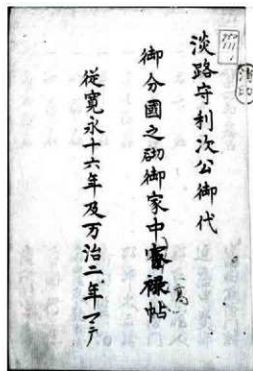 淡路守利次公御代
御分國之砌御家中高禄帖
従寛永十六年及万治二年マテ